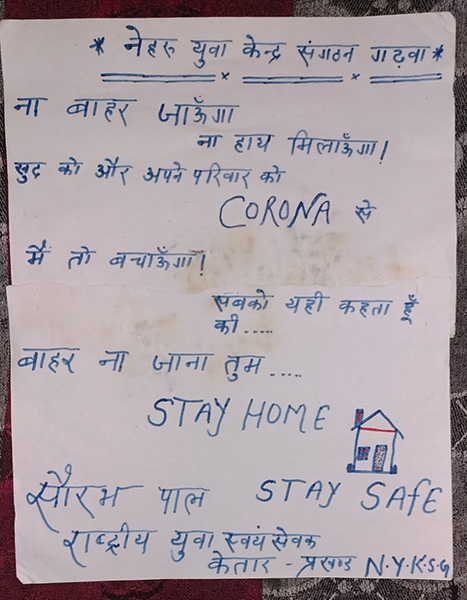 * नेहरु युवा केन्द्र संगठन गढ़वा *
ना बाहर जाऊँगा
ना हाथ मिलाऊँगा!
खुद को और अपने परिवार को
CORONA से
मैं तो बचाऊँगा!
सबको यही कहता हूँ
की.....
बाहर ना जाना तुम.....
STAY HOME
STAY SAFE
सौरभ पाल
राष्ट्रीय युवा स्वयं सेवक
केतार - प्रखण्ड N.Y.K.S.G